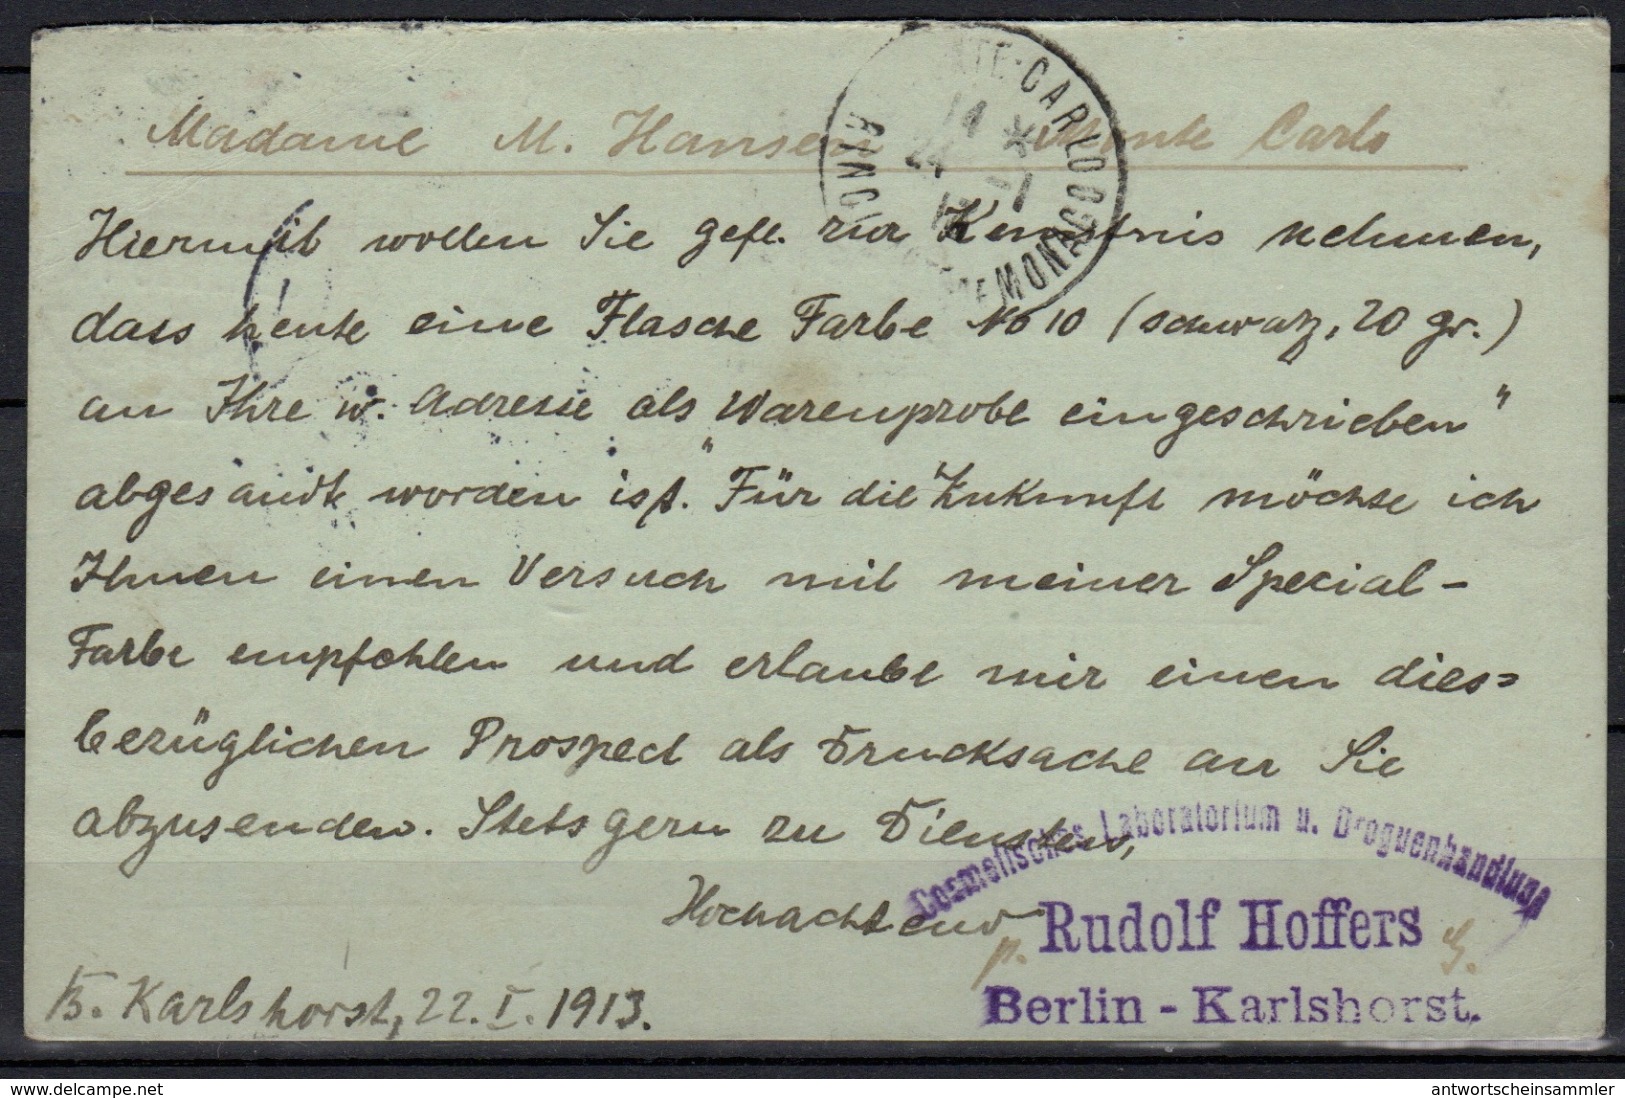 Madame M. Hansen Monte Carlo
MONTE-CARLO
14 *
24 -1
13
PCIPTE DE MONACO
Hiermit wollen Sie gefl. zur Kenntnis nehmen,
dass heute eine Flasche Farbe No 10 (schwarz, 20 gr.)
an Ihre w. Adresse als „Warenprobe eingeschrieben"
abgesandt worden ist. Für die Zukunft möchte ich
Ihnen einen Versuch mit meiner Special-
Farbe empfehlen und erlaube mir einen dies=
bezüglichen Prospect als Drucksache an Sie
abzusenden. Stets gern zu Diensten,
Hochachtend
Cosmetisches Laboratorium u. Droguenhandlung
p. Rudolf Hoffers
Berlin - Karlshorst.
B. Karlshorst, 22. I. 1913.
delcampe.net
antwortscheinsammler